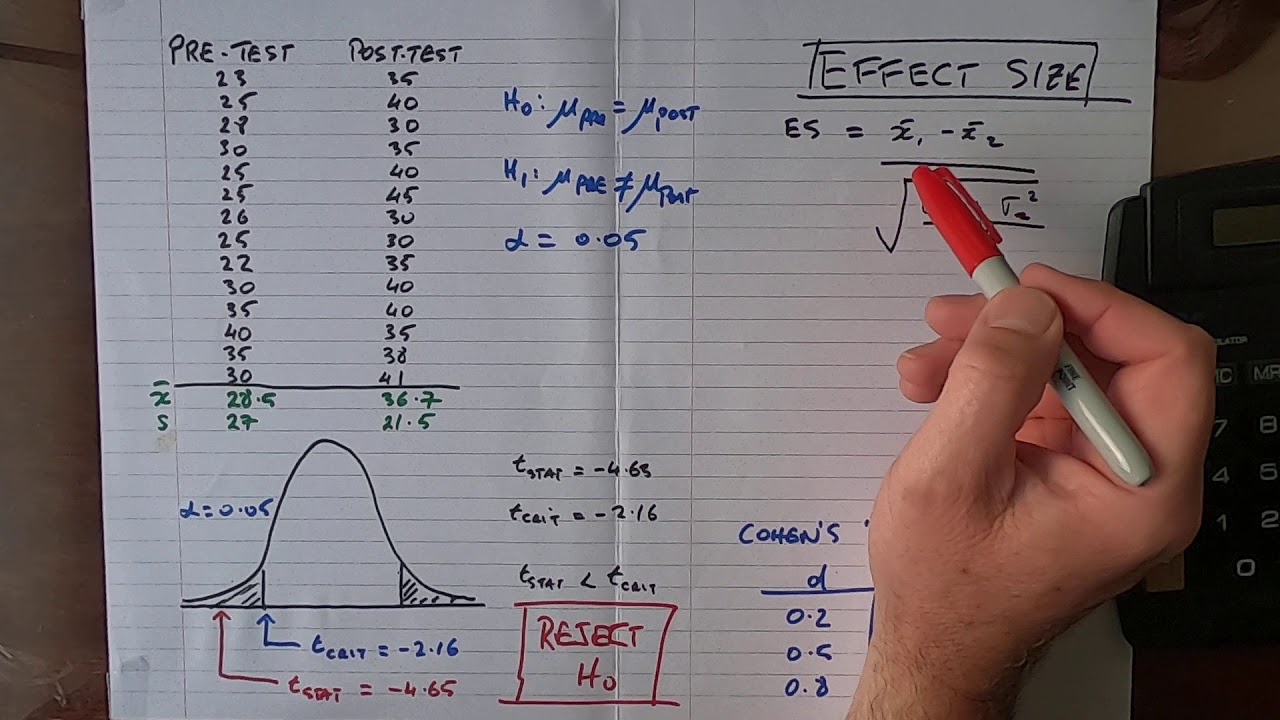 PRE-TEST POST-TEST
23 35
25 40
28 30
30 35
25 40
25 45
26 30
25 30
22 35
30 40
35 40
40 35
35 38
30 41
x̄ 28.5 36.7
S 27 21.5
H₀: μPRE = μPOST
H₁: μPRE ≠ μPOST
α = 0.05
EFFECT SIZE
ES = x̄₁ - x̄₂
√ σ₂²
α = 0.05
tCRIT = -2.16
tSTAT = -4.65
tSTAT = -4.65
tCRIT = -2.16
tSTAT < tCRIT
REJECT
H₀
COHEN'S
d
0.2
0.5
0.8
MR
7 8
4 5
1 2
0